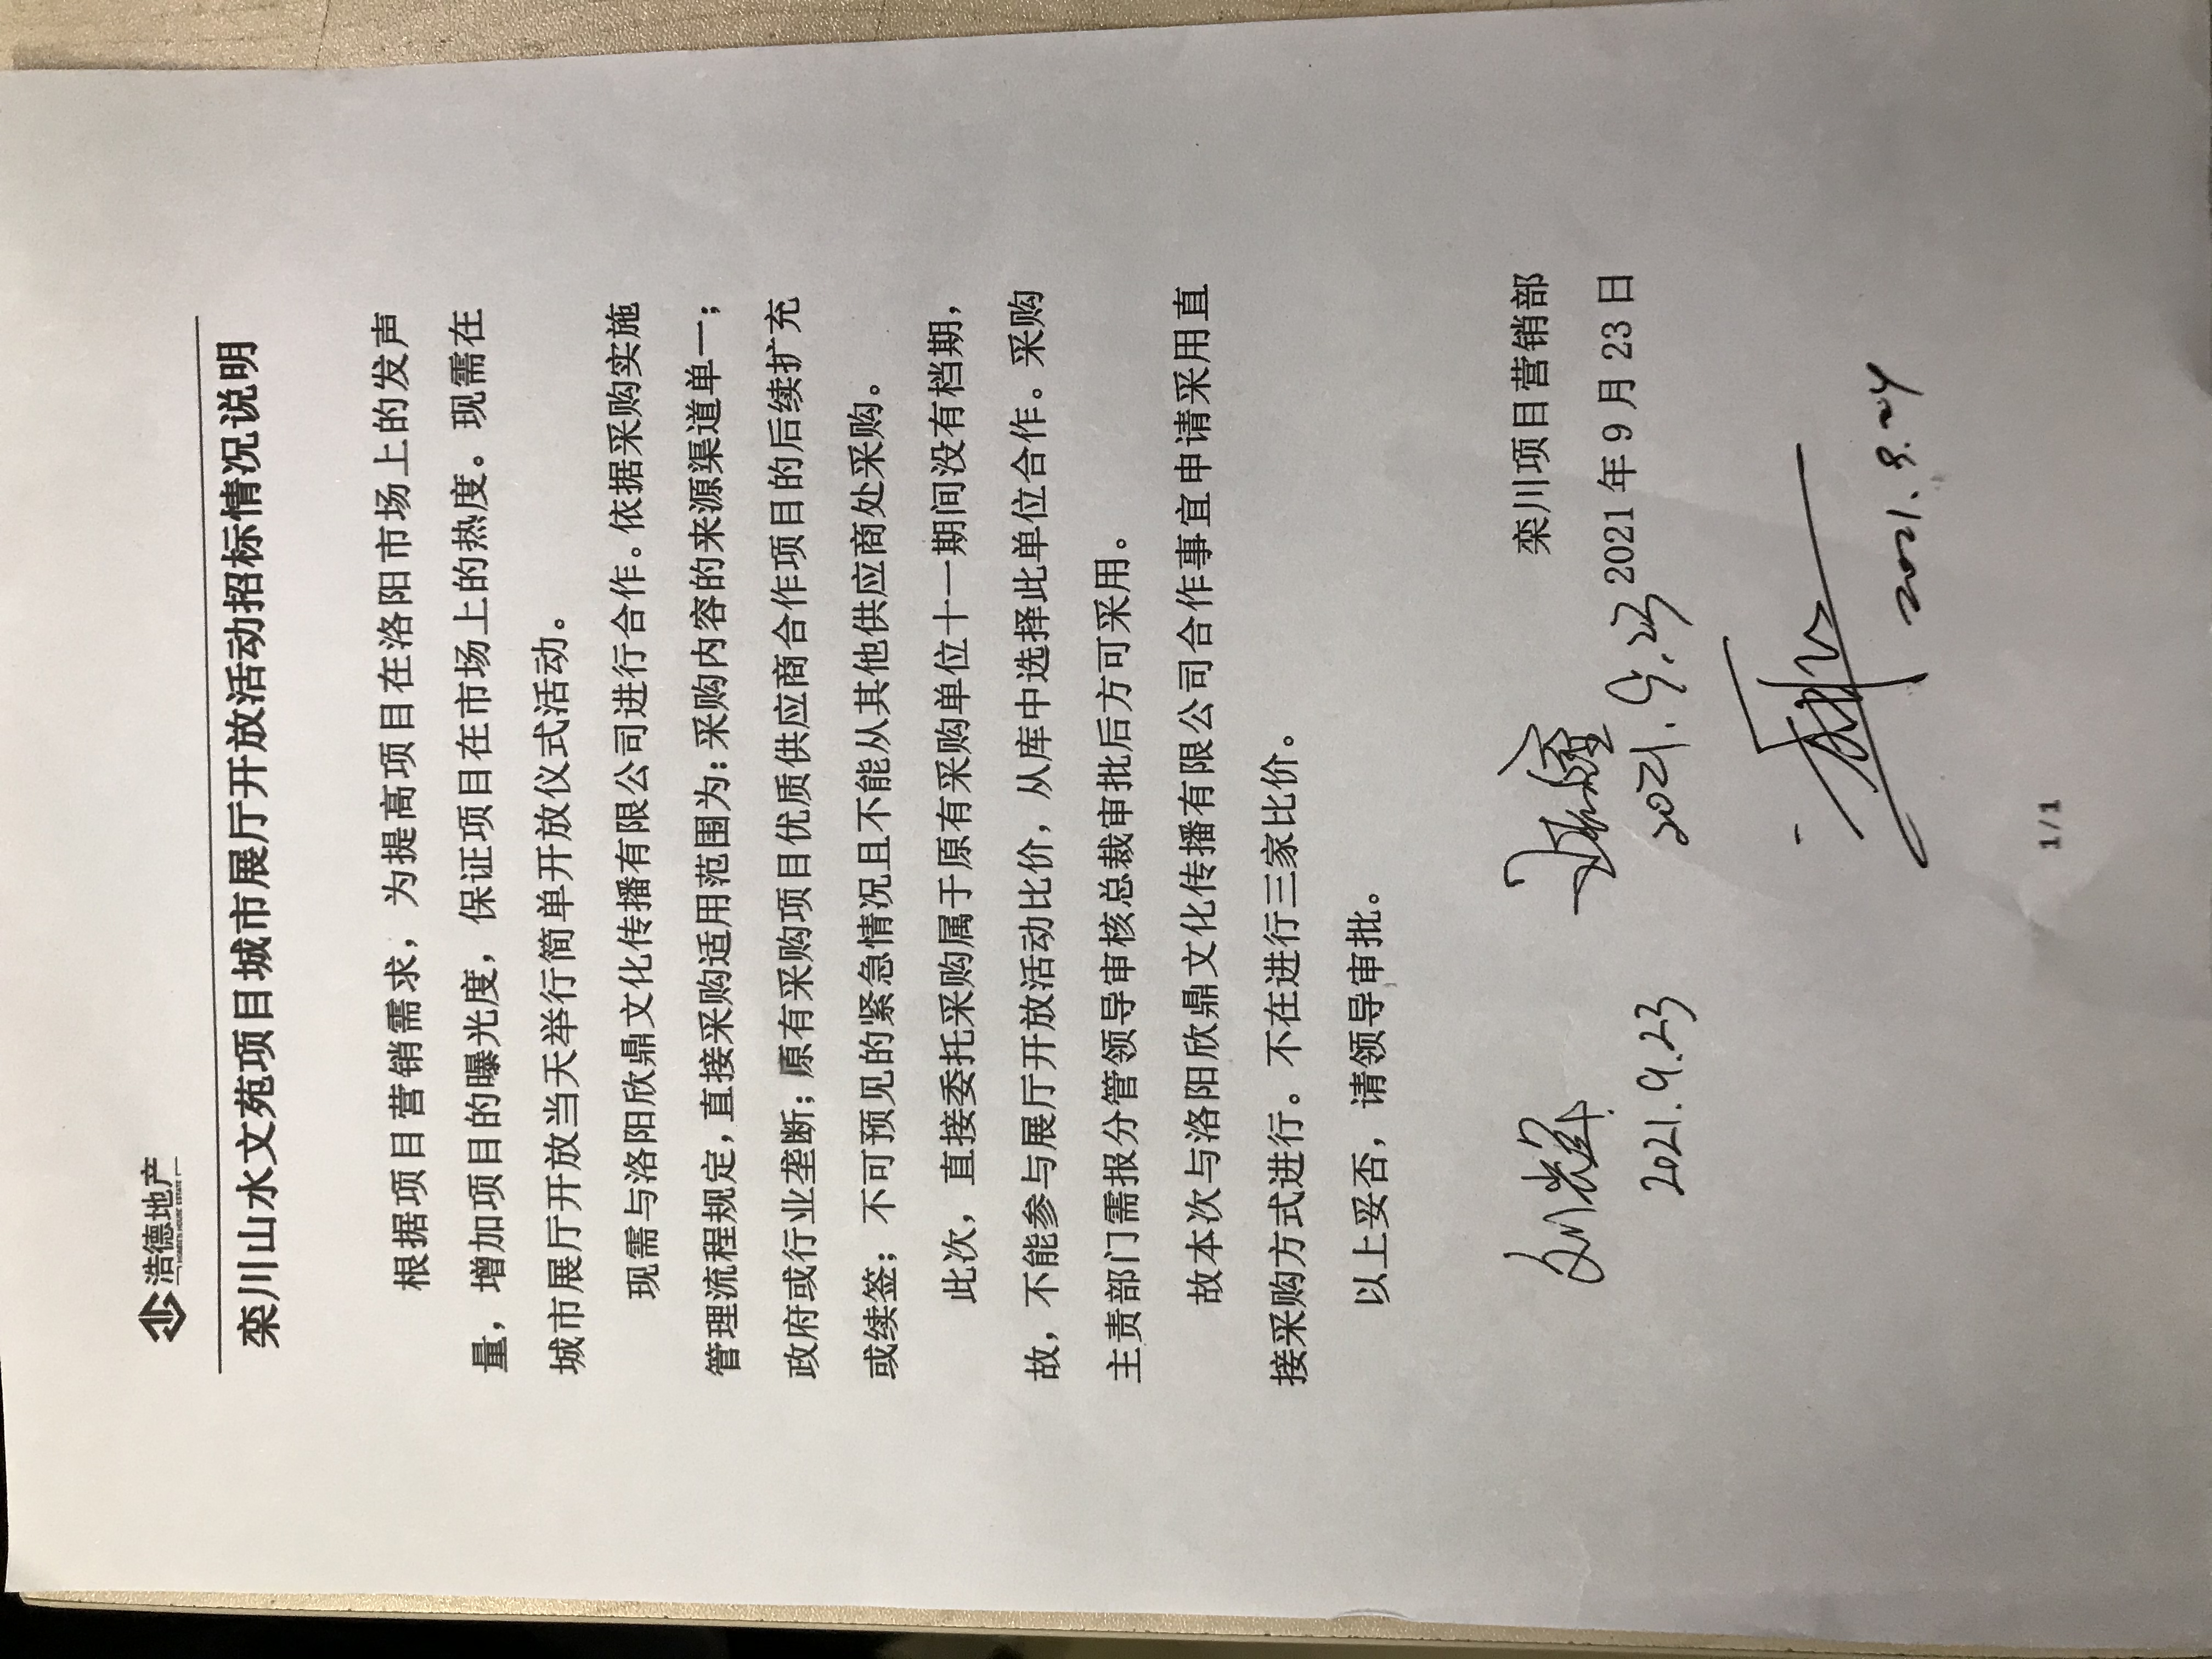 浩德地产
栾川山水文苑项目城市展厅开放活动招标情况说明
根据项目营销需求，为提高项目在洛阳市场上的发声
量，增加项目的曝光度，保证项目在市场上的热度。现需在
城市展厅开放当天举行简单开放仪式活动。
现需与洛阳欣鼎文化传播有限公司进行合作。依据采购实施
管理流程规定，直接采购适用范围为：采购内容的来源渠道单一；
政府或行业垄断；原有采购项目优质供应商合作项目的后续扩充
或续签；不可预见的紧急情况且不能从其他供应商处采购。
此次，直接委托采购属于原有采购单位十一期间没有档期，
故，不能参与展厅开放活动比价，从库中选择此单位合作。采购
主责部门需报分管领导审核总裁审批后方可采用。
故本次与洛阳欣鼎文化传播有限公司合作事宜申请采用直
接采购方式进行。不在进行三家比价。
以上妥否，请领导审批。
栾川项目营销部
2021年9月23日
2021.9.23
2021.9.23
2021.9.24
1/1